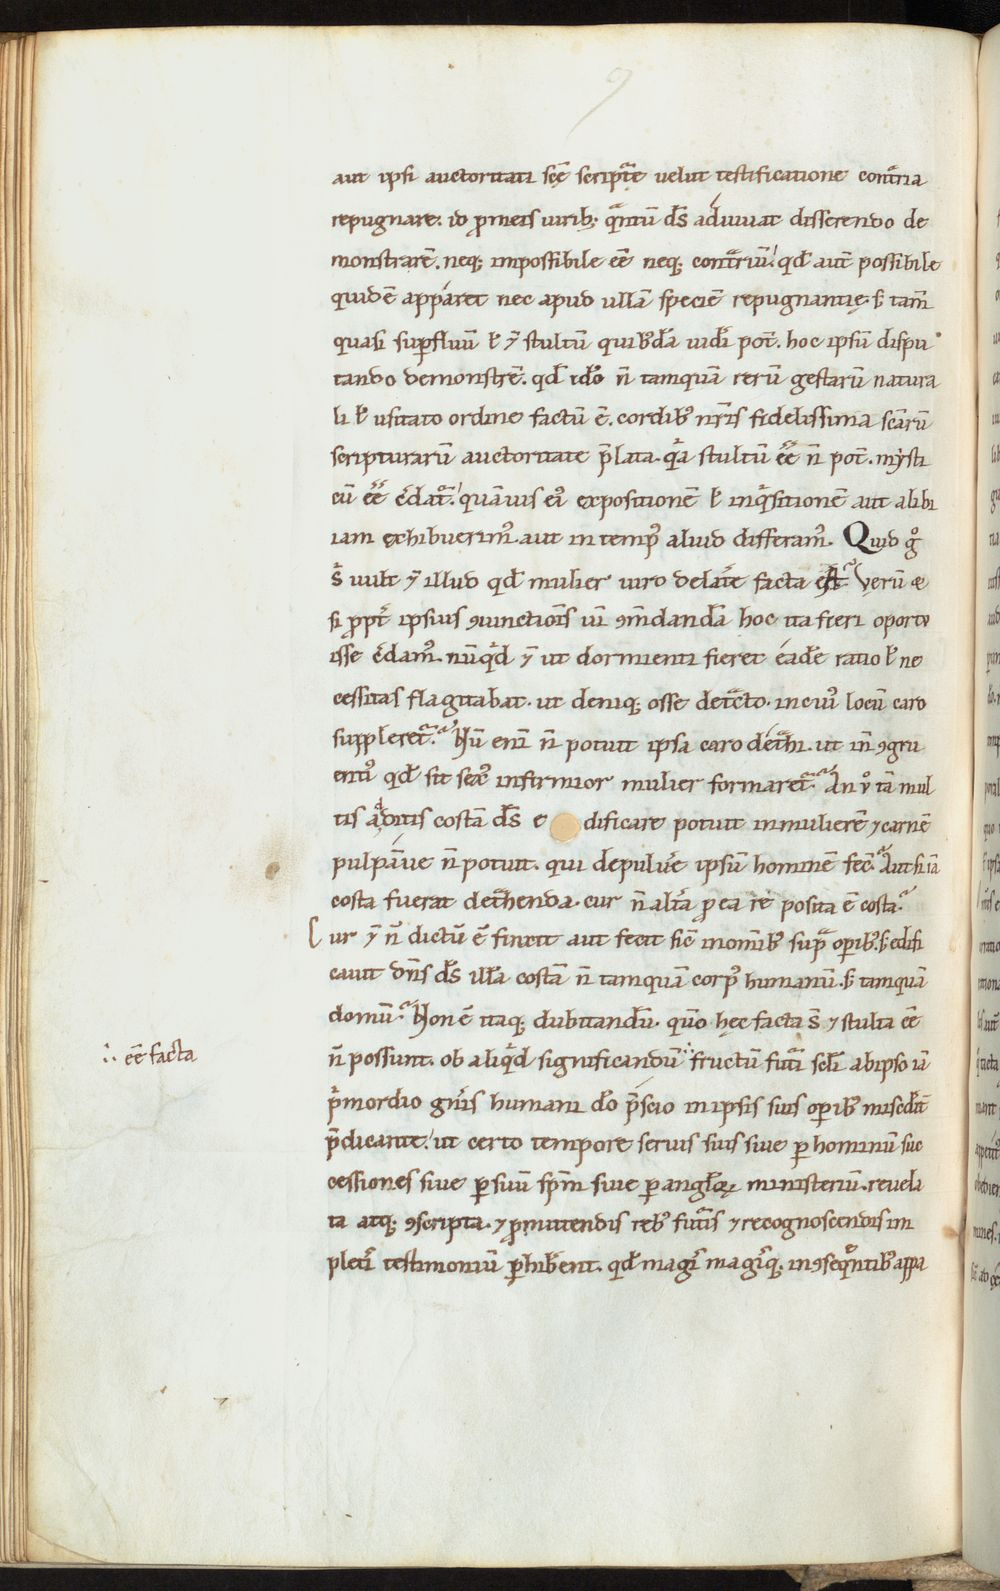 aut ipsi auctoritati scę scriptᷓe velut testificatione contᷓria
repugnare. id ꝓ meis uirib; qᷓntū ds̄ adiuuat disserendo de
monstrarē. neq; impossibile eē neq; contᷓriū. qd̄ aut̄ possibile
quidē apparet nec apud ullā speciē repugnantię. s; tam̄
quasi suꝑfluū ł etiā stultū quib'dā uidi pot̄. hoc ipsū dispu
tando demonstrē. qd̄ ido n̄ tamquā rerū gestarū natura
li ł usitato ordine factū ē. cordib' nr̄is fidelissima scārū
scripturarū auctoritate p̄lata. qᷓa stultū eē n̄ pot̄. mẏsti
cū eē c̄datᷓ. quāuis ei' expositionē ł inqⁱsitionē aut alibi
iam exhibuerim'. aut in temp' aliud differam'. Quid gͦ
s; uult ⁊ illud qd̄ mulier uiro de lat̄e facta est? Verū æ
si ꝓpt̄ ipsius ꝯiunctiōis ui ꝯm̄dandā hoc ita fieri oportu
isse c̄dam'. nūqⁱd ⁊ ut dormienti fieret eadē ratio ł ne
cessitas flagitabat. ut deniq; osse detᷓcto. in cui' locū caro
suppleretᷓ? Nū eni n̄ potuit ipsa caro detᷓhi. ut in̄ ꝯgru
enti' qd̄ sit sex' infirmior mulier formaretᷓ? An ů tā mul
tis additis costā ds̄ e dificare potuit in mulierē ⁊ carnē
pulpāue n̄ potuit. qui de pulu̓e ipsū hominē fec̄? Aut si iā
costa fuerat detᷓhenda. cur n̄ alt̓a ꝓ ea re posita ē costa?
Cur ⁊ n̄ dictū ē finxit aut fecit sic̄ in om̄ib' supᷓ oꝑib'. s; edifi
cauit dn̄s ds̄ illā costā n̄ tamquā corp' humanū. s; tamquā
domū? Non ē itaq; dubitandū. qūo hęc facta s̄ ⁊ stulta eē
n̄ possunt. ob aliqⁱd significandū ∴ fructū futᷓi scl̄i ab ipso iā
pⁱmordio gn̄is humani do p̄scio in ipsis suis oꝑib' misedit̄
p̄dicante. ut certo tempore seruis suis siue ꝑ hominū suc
cessiones siue ꝑ suū spm̄ siue ꝑ angl̄oꝝ ministeriū. reuela
ta atq; ꝯscripta. ⁊ ꝓmittendis reb' futᷓis ⁊ recognoscendis im
pletⁱs testimoniū ꝑhiberent. qd̄ magⁱs magⁱsq; in ꝯseqᷓntib' appa
∴ eē facta